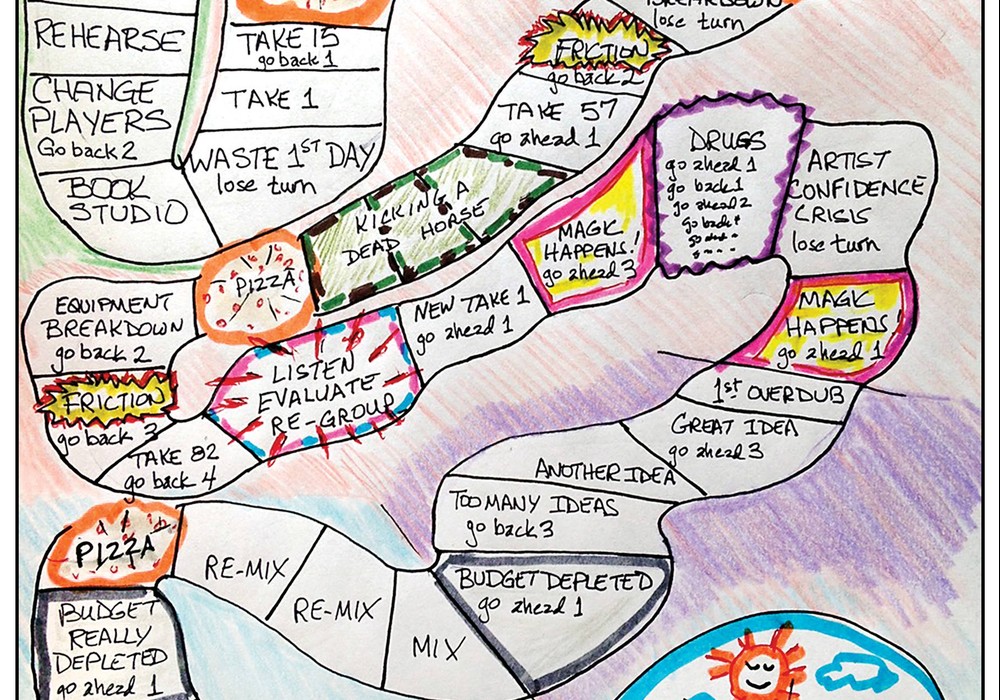 REHEARSE
CHANGE
PLAYERS
Go back 2
BOOK
STUDIO
WASTE 1ST DAY
lose turn
TAKE 1
TAKE 15
go back 1
BREAKDOWN
lose turn
FRICTION
go back 2
TAKE 57
go ahead 1
KICKING A
DEAD HORSE
PIZZA
EQUIPMENT
BREAKDOWN
go back 2
FRICTION
go back 3
TAKE 82
go back 4
LISTEN
EVALUATE
RE-GROUP
NEW TAKE 1
go ahead 1
MAGIC
HAPPENS!
go ahead 3
DRUGS
go ahead 1
go back 1
go ahead 2
go back
ARTIST
CONFIDENCE
CRISIS
lose turn
MAGIC
HAPPENS!
go ahead 1
1st OVERDUB
GREAT IDEA
go ahead 3
ANOTHER IDEA
TOO MANY IDEAS
go back 3
BUDGET DEPLETED
go ahead 1
MIX
RE-MIX
RE-MIX
PIZZA
BUDGET
REALLY
DEPLETED
go ahead 1